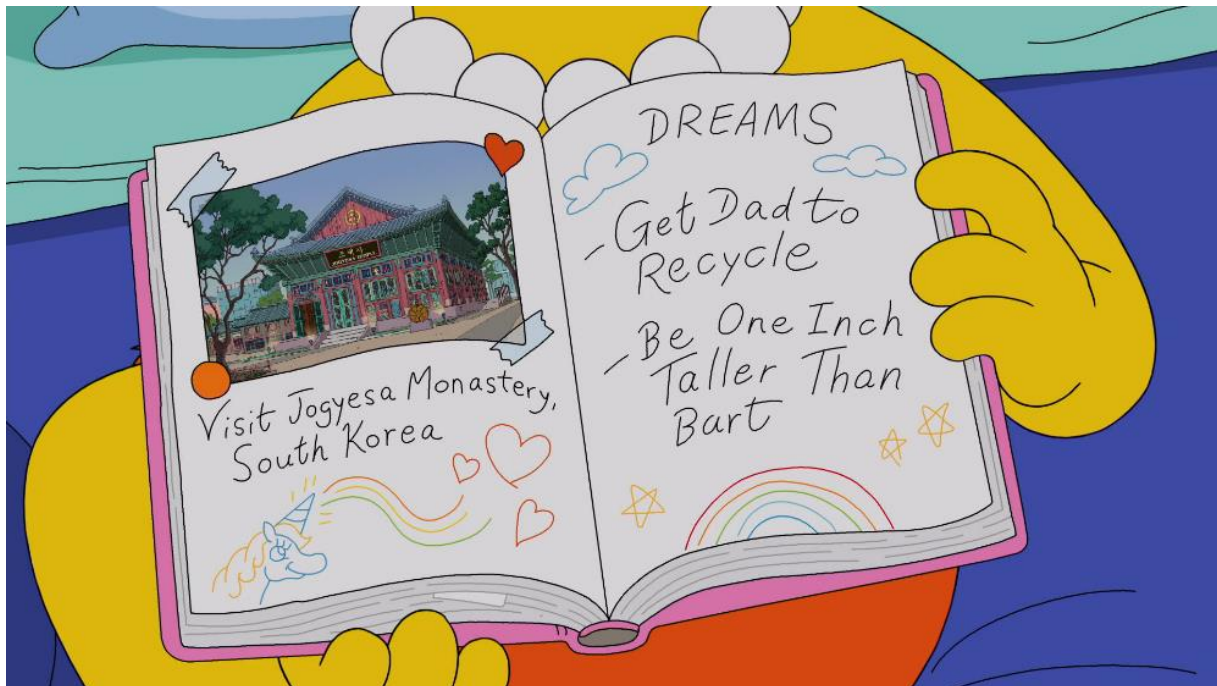 조계사
JOGYESA TEMPLE
Visit Jogyesa Monastery,
South Korea
DREAMS
- Get Dad to
Recycle
- Be One Inch
Taller Than
Bart